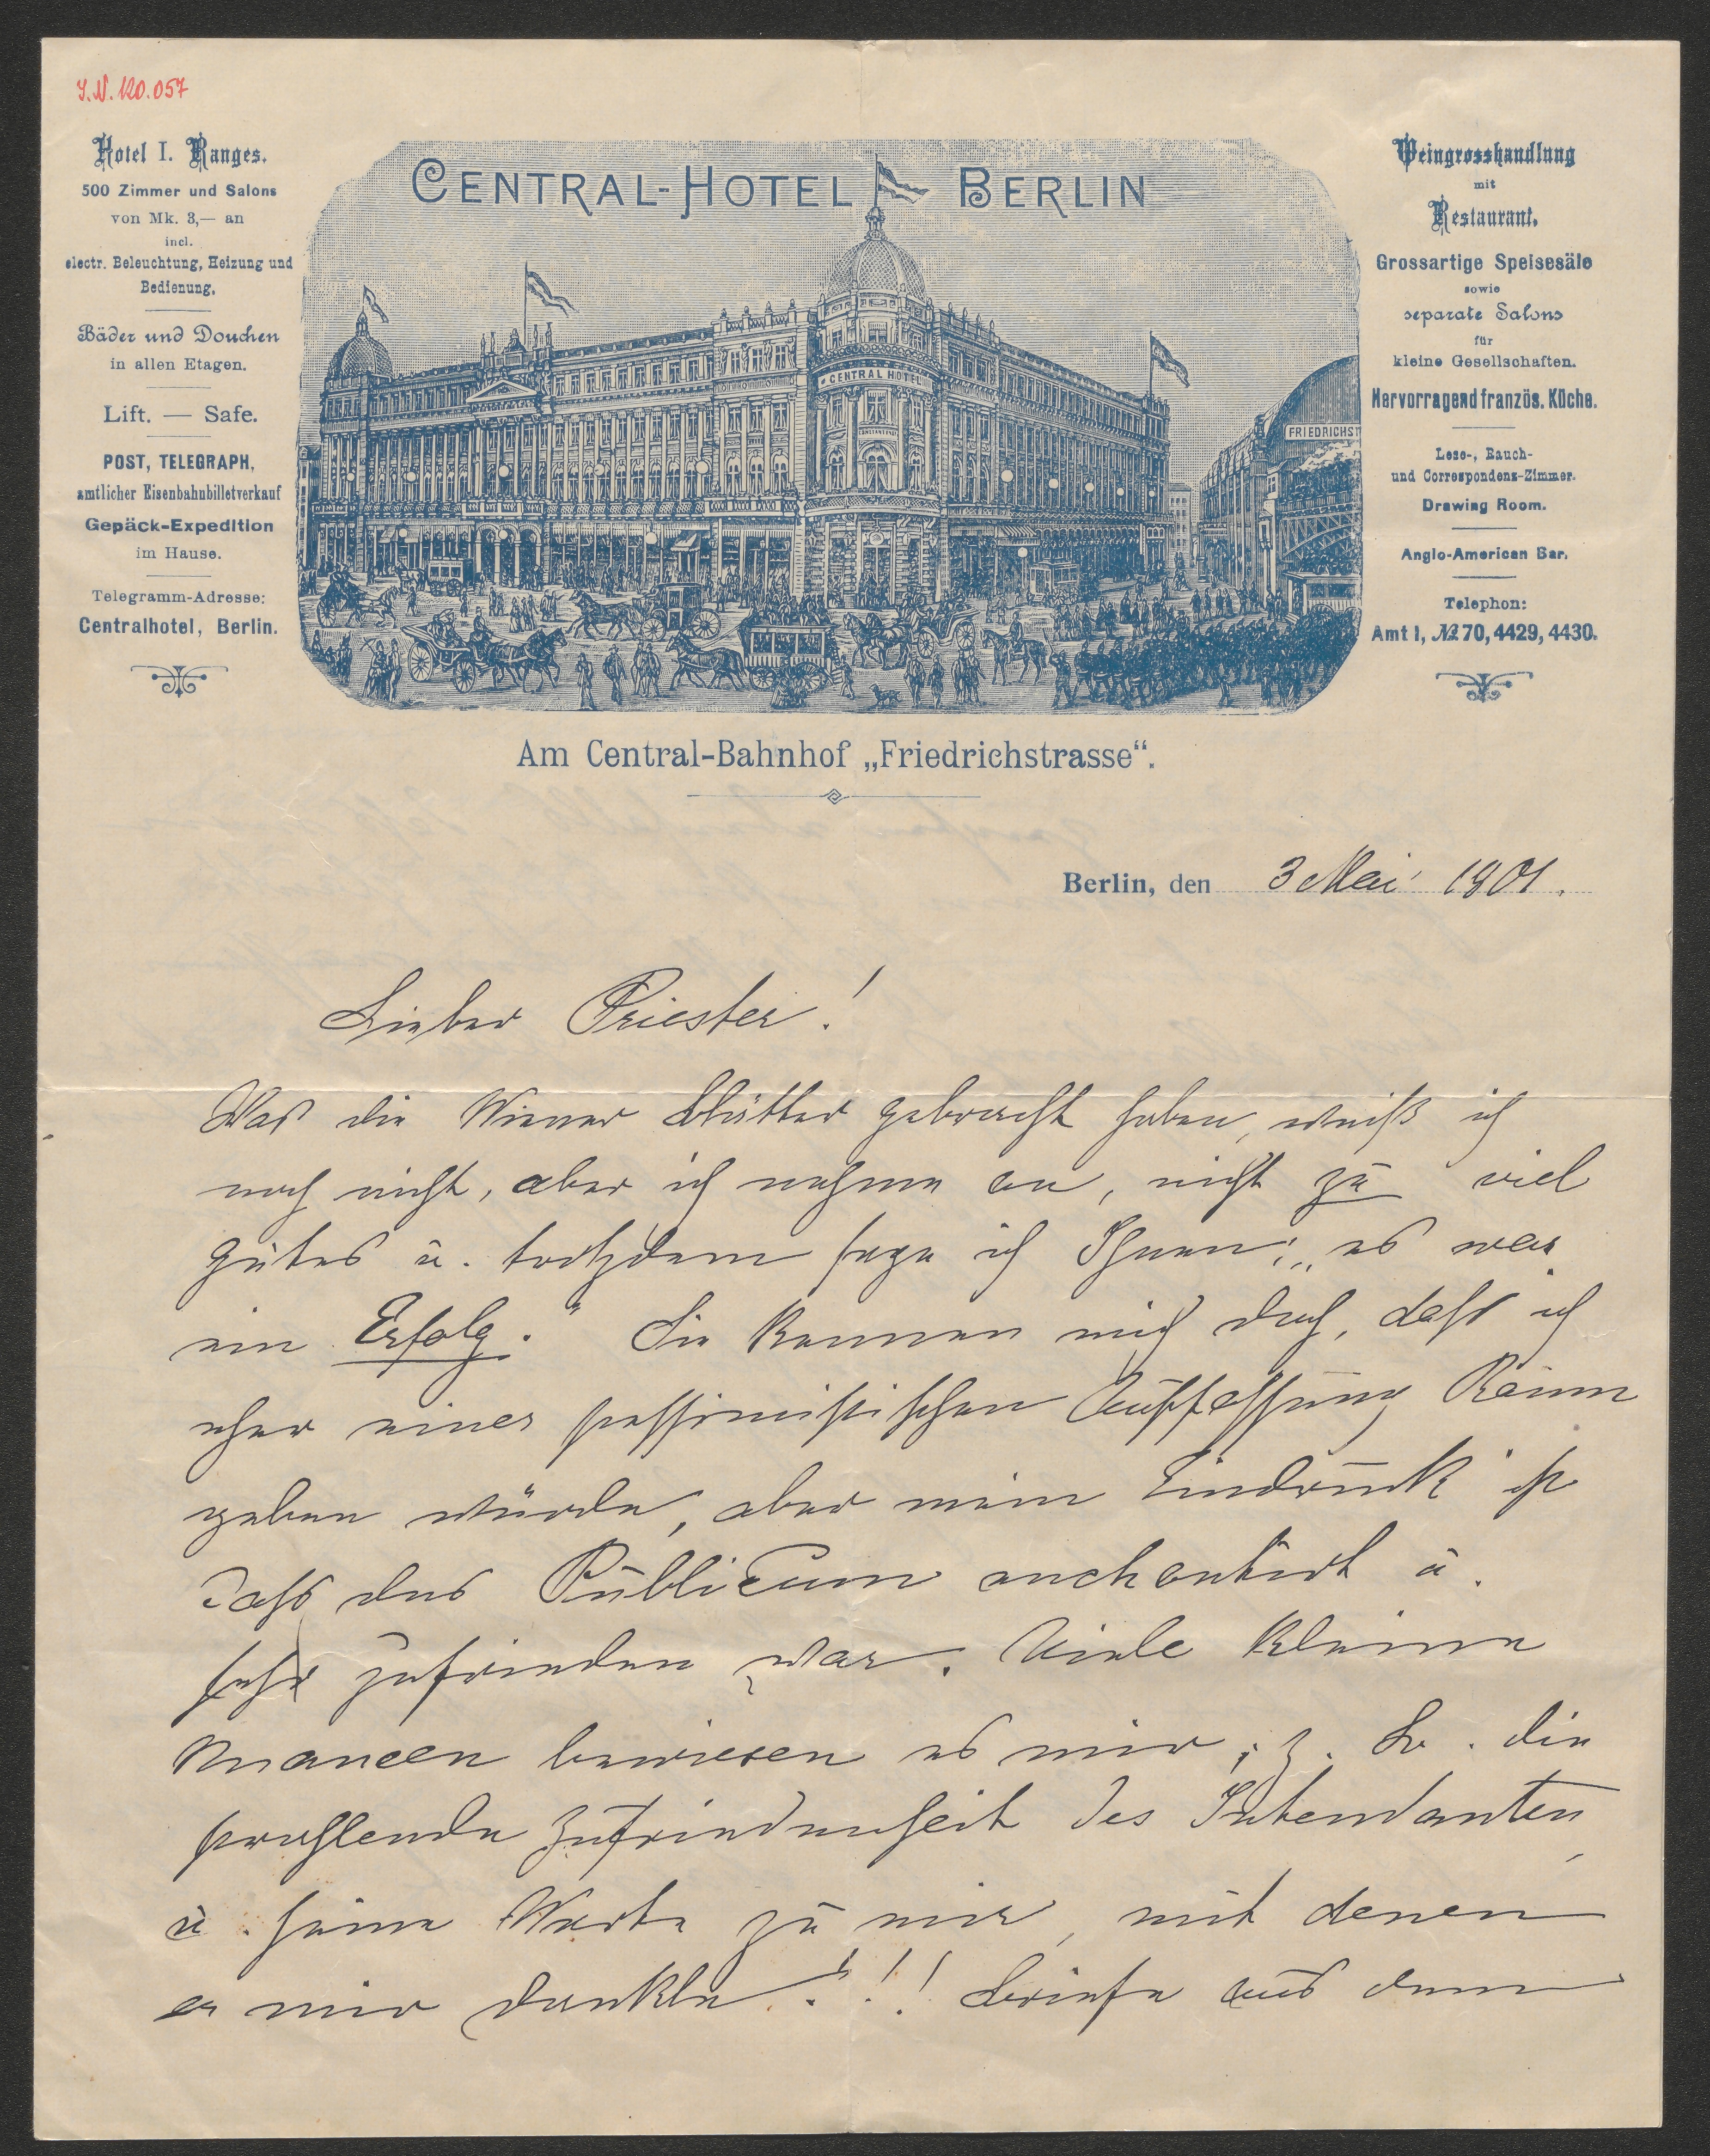 I.N. 120.057
Hotel I. Ranges.
500 Zimmer und Salons
von Mk. 3,— an
incl.
electr. Beleuchtung, Heizung und
Bedienung.
Bäder und Douchen
in allen Etagen.
Lift. — Safe.
POST, TELEGRAPH,
amtlicher Eisenbahnbilletverkauf
Gepäck-Expedition
im Hause.
Telegramm-Adresse:
Centralhotel, Berlin.
CENTRAL-HOTEL BERLIN
CENTRAL HOTEL
FRIEDRICHST
Weingrosshandlung
mit
Restaurant.
Grossartige Speisesäle
sowie
separate Salons
für
kleine Gesellschaften.
Hervorragend französ. Küche.
Lese-, Rauch-
und Correspondenz-Zimmer.
Drawing Room.
Anglo-American Bar.
Telephon:
Amt I, № 70, 4429, 4430.
Am Central-Bahnhof „Friedrichstrasse“.
Berlin, den 3 Mai 1901.
Lieber Priester!
Was die Wiener Blätter gebracht haben, weiß ich
noch nicht, aber ich nehme an, nicht zu viel
gutes u. trotzdem sage ich Ihnen: „es war
ein Erfolg.“ Sie kennen mich doch, dass ich
eher einer pessimistischen Auffassung Raum
geben würde, aber mein Eindruck ist
dass das Publicum enchantirt u.
sehr zufrieden war. Viele kleine
Nuancen bewiesen es mir, z. B. die
strahlende Zufriedenheit des Intendanten
u. seine Worte zu mir, mit denen
er mir dankte!!! Briefe aus dem